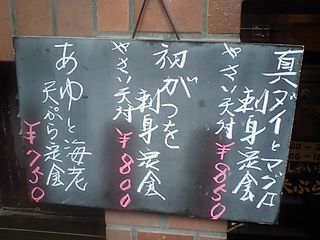 真ダイとマグロ
刺身定食
やさい天付
¥850
初がつを
刺身定食
やさい天付
¥800
あゆと海老
天ぷら定食
¥750